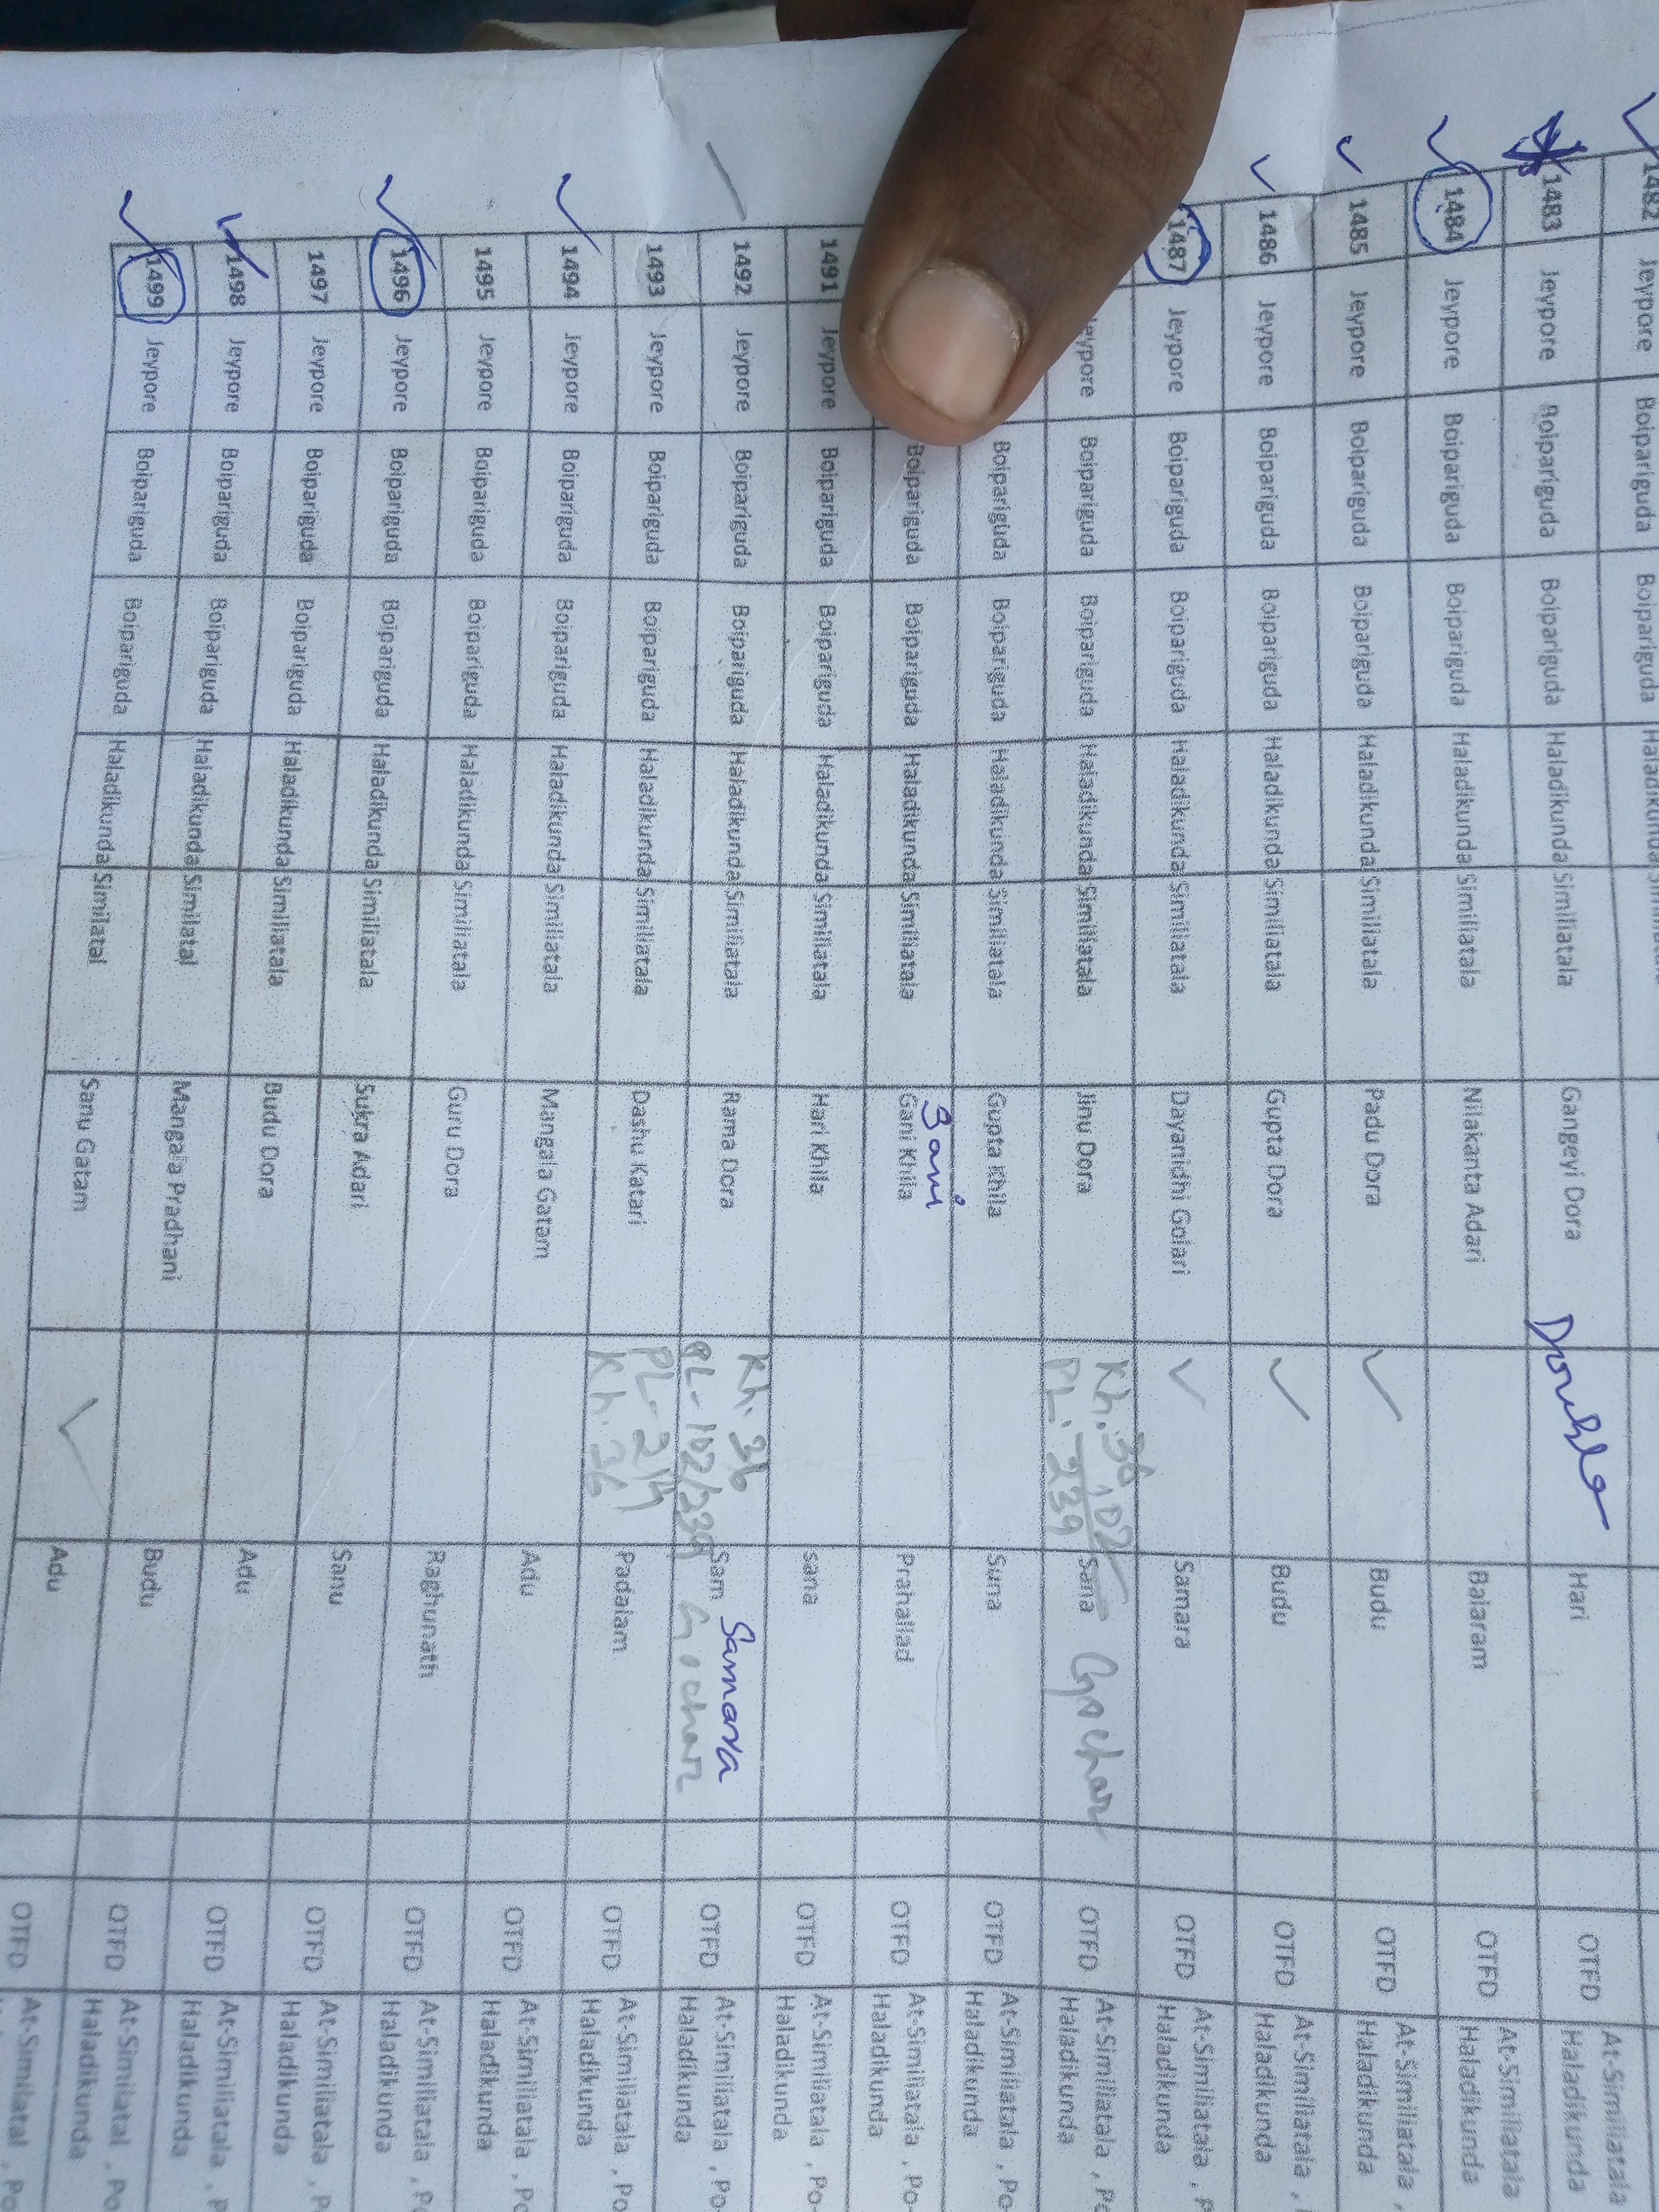 1482 Jeypore Boipariguda Boipariguda
1483 Jeypore Boipariguda Boipariguda Haladikunda Similiatala Gangeyi Dora Double Hari OTFD At-Similiatala
Haladikunda
1484 Jeypore Boipariguda Boipariguda Haladikunda Similiatala Nilakanta Adari Balaram OTFD At-Similiatala
Haladikunda
1485 Jeypore Boipariguda Boipariguda Haladikunda Similiatala Padu Dora Budu OTFD At-Similiatala ,
Haladikunda
1486 Jeypore Boipariguda Boipariguda Haladikunda Similiatala Gupta Dora Budu OTFD At-Similiatala ,
Haladikunda
1487 Jeypore Boipariguda Boipariguda Haladikunda Similiatala Dayanidhi Golari Samara OTFD At-Similiatala , P
Haladikunda
Kh. 36
Jeypore Boipariguda Boipariguda Haladikunda Similiatala Jinu Dora PL. 102/239 Sana Gochar OTFD At-Similiatala , Po
Haladikunda
Boipariguda Boipariguda Haladikunda Similiatala Gupta Khila Suna OTFD At-Similiatala , Po-
Haladikunda
Boipariguda Boipariguda Haladikunda Similiatala Gani Khila Prahallad OTFD At-Similiatala , Po-
Haladikunda
1491 Jeypore Boipariguda Boipariguda Haladikunda Similiatala Hari Khila sana OTFD At-Similiatala , Po-
Haladikunda
Kh. 36 Samara
1492 Jeypore Boipariguda Boipariguda Haladikunda Similiatala Rama Dora PL-102/239 Sam Gochar OTFD At-Similiatala , Po-
Haladikunda
1493 Jeypore Boipariguda Boipariguda Haladikunda Similiatala Dashu Katari Padalam OTFD At-Similiatala , Po
Kh. 36 Haladikunda
1494 Jeypore Boipariguda Boipariguda Haladikunda Similiatala Mangala Gatam Adu OTFD At-Similiatala , Po
Haladikunda
1495 Jeypore Boipariguda Boipariguda Haladikunda Similiatala Guru Dora Raghunath OTFD At-Similiatala , Po
Haladikunda
1496 Jeypore Boipariguda Boipariguda Haladikunda Similiatala Sukra Adari Sanu OTFD At-Similiatala , P
Haladikunda
1497 Jeypore Boipariguda Boipariguda Haladikunda Similiatala Budu Dora Adu OTFD At-Similiatala , P
Haladikunda
1498 Jeypore Boipariguda Boipariguda Haladikunda Similatal Mangala Pradhani Budu OTFD At-Similiatal , Po
Haladikunda
1499 Jeypore Boipariguda Boipariguda Haladikunda Similatal Sanu Gatam Adu OTFD At-Similatal , Po